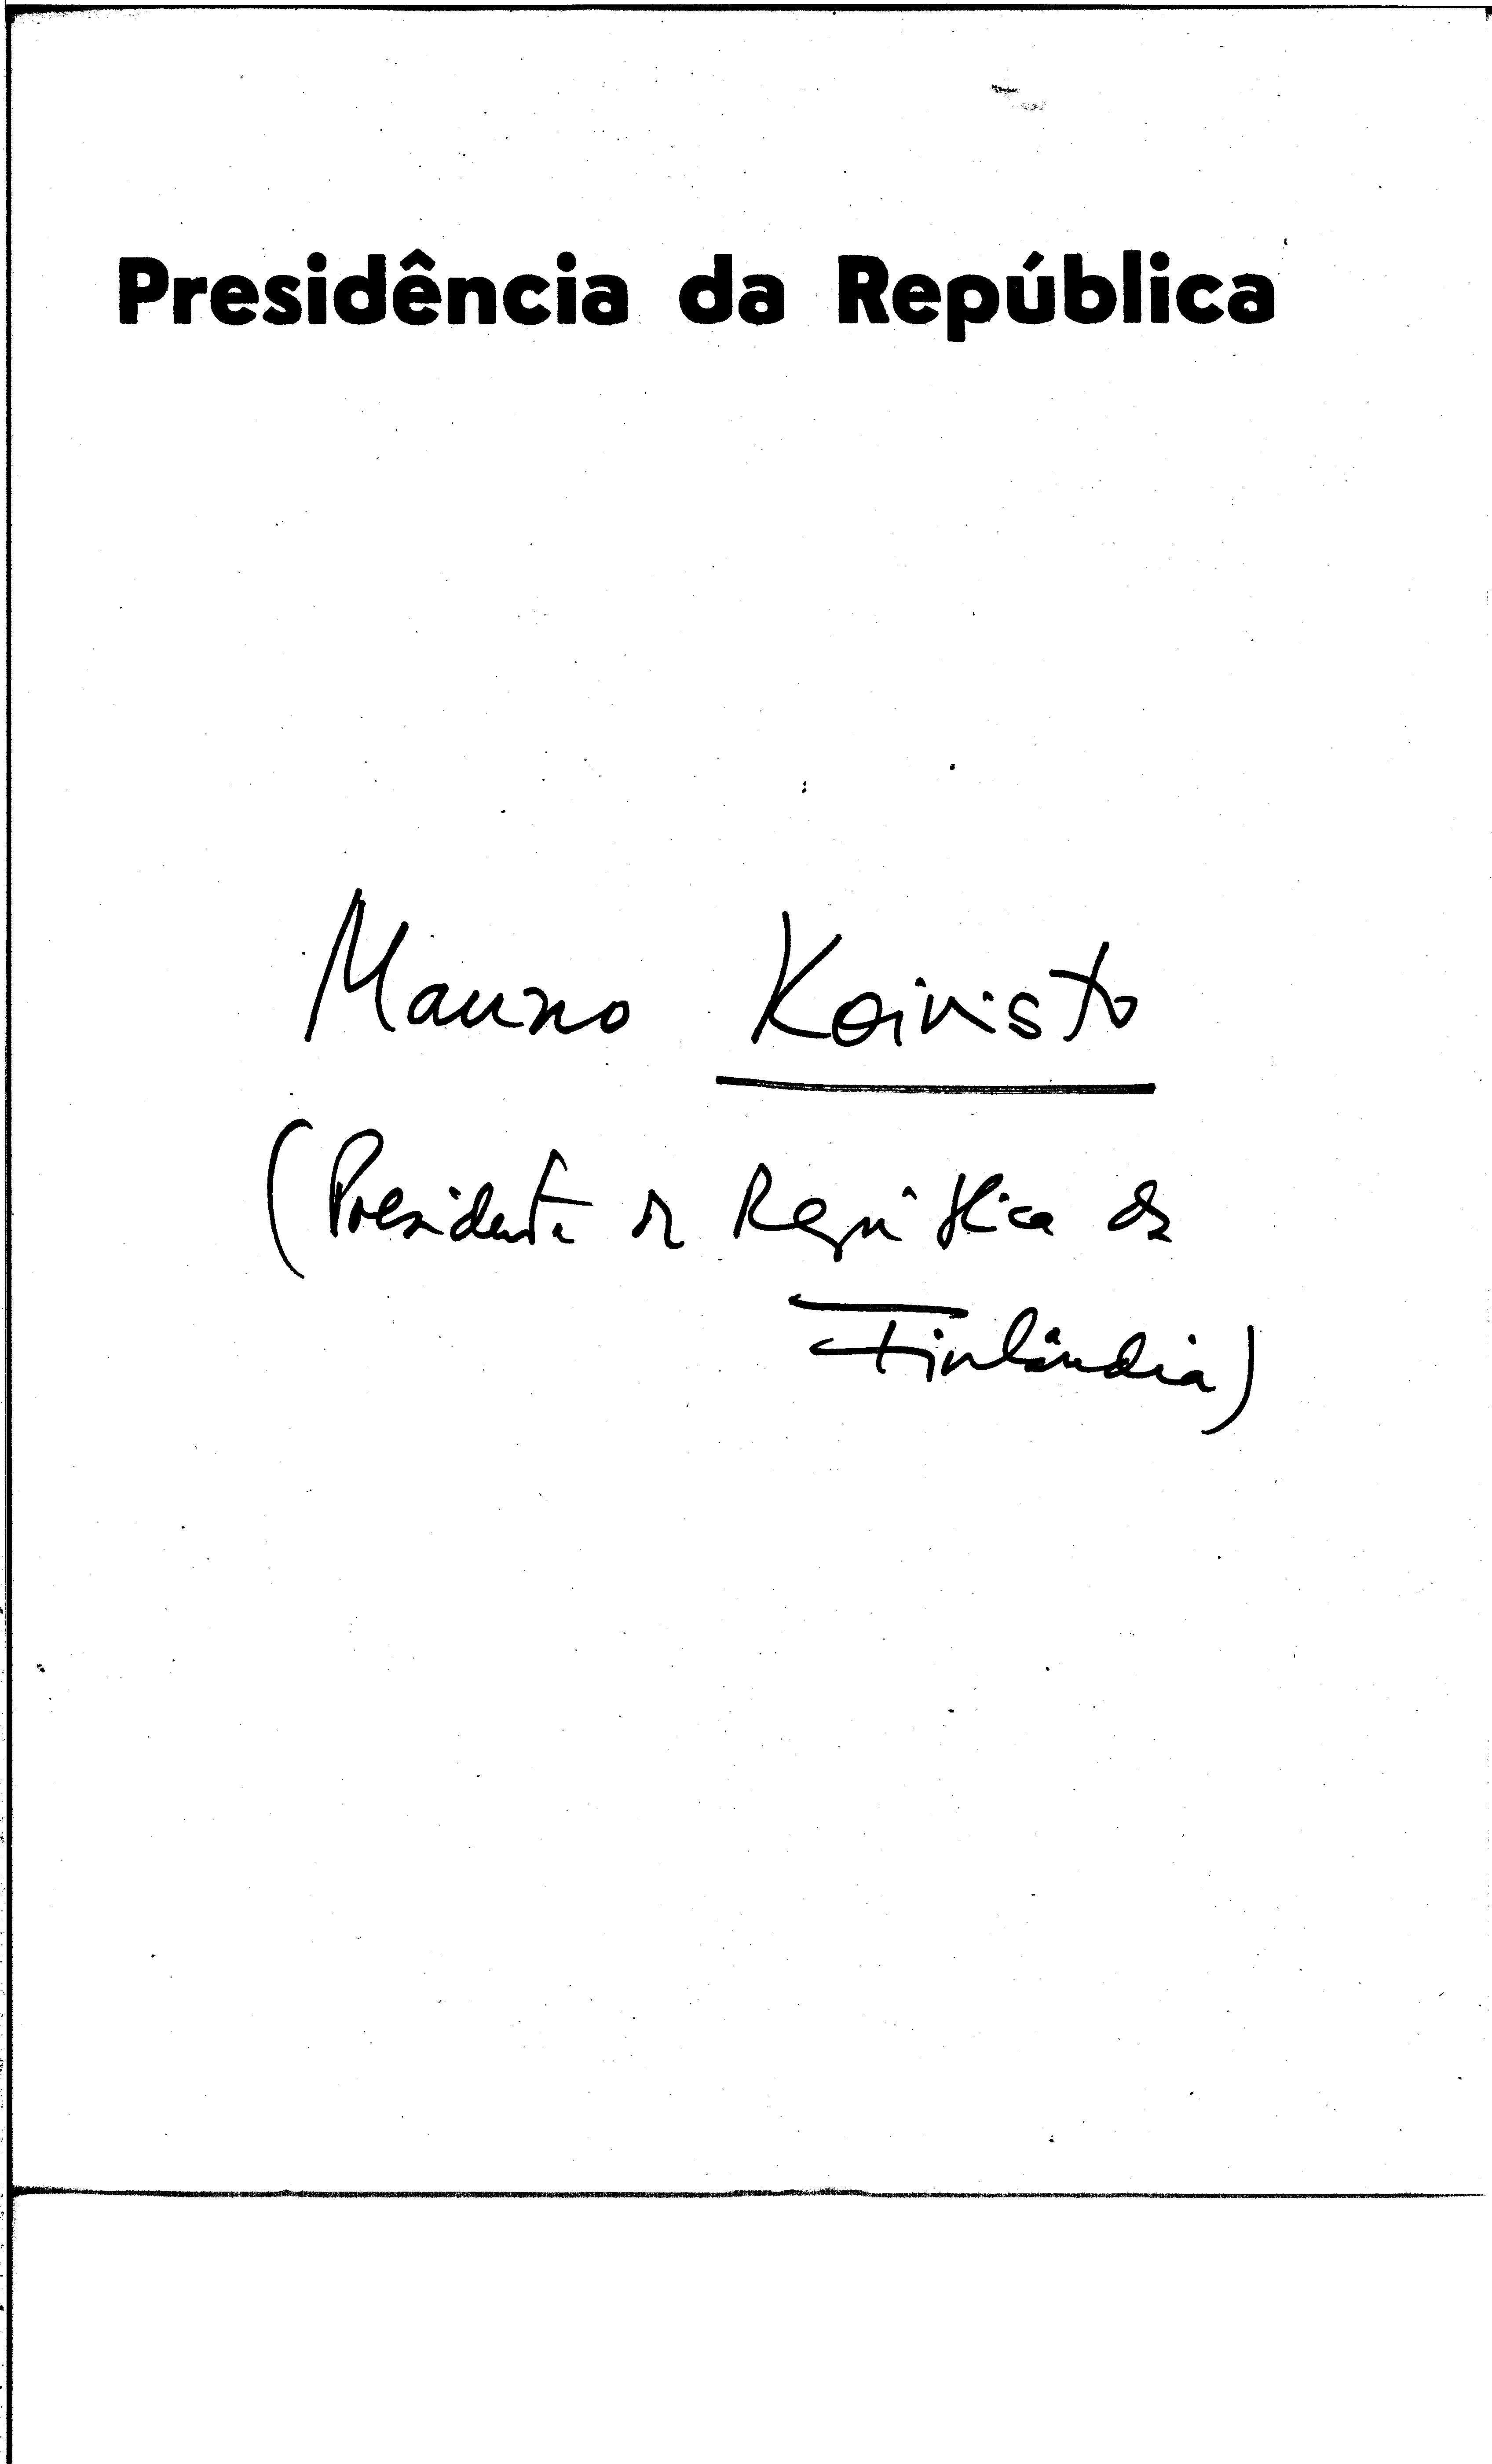 Presidência da República
Mauno Koivisto
(Presidente da República da
Finlândia)